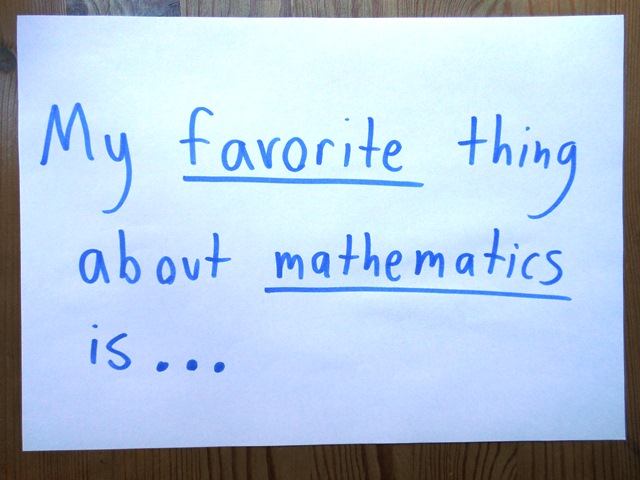 My favorite thing
about mathematics
is...